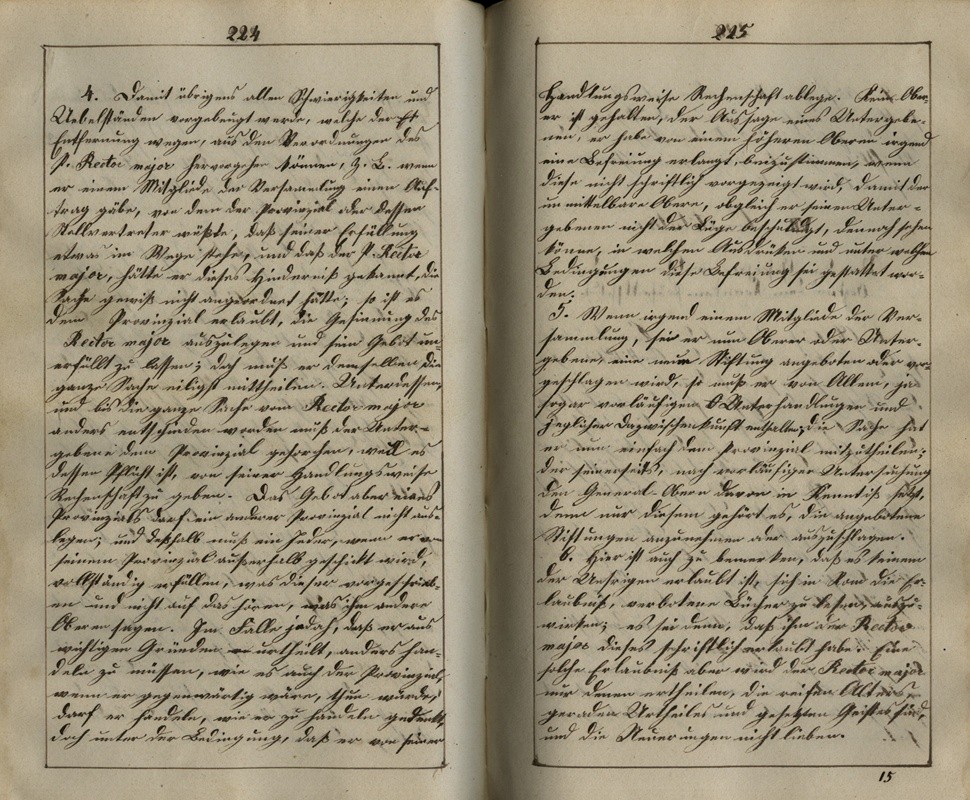 224
4. Damit übrigens allen Schwierigkeiten und
Uebelständen vorgebeugt werde, welche der Ent-
Entfernung wegen, aus den Verordnungen des
P. Rector major hervorgehen können, z. B. wenn
er einem Mitgliede der Versammlung einen Auf-
trag gäbe, von dem der Provinzial oder dessen
Stellvertreter wüßte, daß seiner Erfüllung
etwas im Wege stehe, und daß der P. Rector
major, hätte er dieses Hinderniß gekannt, die
Sache gewiß nicht angeordnet hätte; so ist es
dem Provinzial erlaubt, die Gesinnung des
Rector major auszulegen und sein Gebot un-
erfüllt zu lassen; doch muß er demselben die
ganze Sache eiligst mittheilen. Unterdessen,
und bis die ganze Sache vom Rector major
anders entschieden worden muß der Unter-
gebene dem Provinzial gehorchen, weil es
dessen Pflicht ist, von seiner Handlungsweise
Rechenschaft zu geben. Das Gebot aber eines
Provinzials darf ein anderer Provinzial nicht aus-
legen; und deßhalb muß ein Jeder, wenn er von
seinem Provinzial außerhalb geschickt wird,
vollständig erfüllen, was dieser vorgeschrieb-
en und nicht auf das hören, was ihm andere
Oberen sagen. Im Falle jedoch, daß er aus
wichtigen Gründen urtheilt, anders han-
deln zu müssen, wie es auch der Provinzial,
wenn er gegenwärtig wäre, thun würde,
darf er handeln, wie er zu handeln gedenkt,
doch unter der Bedingung, daß er von seiner
225
Handlungsweise Rechenschaft ablege. Kein Ober-
er ist gehalten, der Aussage eines Untergebe-
nen, er habe von einem höheren Oberen irgend
eine Befreiung erlangt, beizustimmen, wenn
diese nicht schriftlich vorgezeigt wird, damit der
unmittelbare Obere, obgleich er seinen Unter-
gebenen nicht der Lüge beschuldigt, dennoch sehen
könne, in welchen Ausdrücken und unter welchen
Bedingungen diese Befreiung sei gestattet wor-
den.
5. Wenn irgend einem Mitgliede der Ver-
sammlung, sei er nun Oberer oder Unter-
gebene, eine neue Stiftung angeboten oder vor-
geschlagen wird, so muß er von Allem, ja
sogar vorläufigen Unterhandlungen und
jeglicher Dazwischenkunft enthalten; die Sache hat
er nun einfach dem Provinzial mitzutheilen;
der seinerseits, nach vorläufiger Untersuchung
den General-Obern davon in Kenntniß setzt,
denn nur diesem gehört es, die angebotene
Stiftungen anzunehmen oder auszuschlagen.
6. Hier ist auch zu bemerken, daß es keinem
der Unsrigen erlaubt ist, sich in Rom die Er-
laubniß, verbotene Bücher zu lesen, auszu-
wirken; es sei denn, daß ihm der Rector
major dieses schriftlich erlaubt habe. Eine
solche Erlaubniß aber wird der Rector major
nur denen ertheilen, die reifen Alters,
geraden Urtheiles und gesetzten Geistes sind,
und die Neuerungen nicht lieben.
15